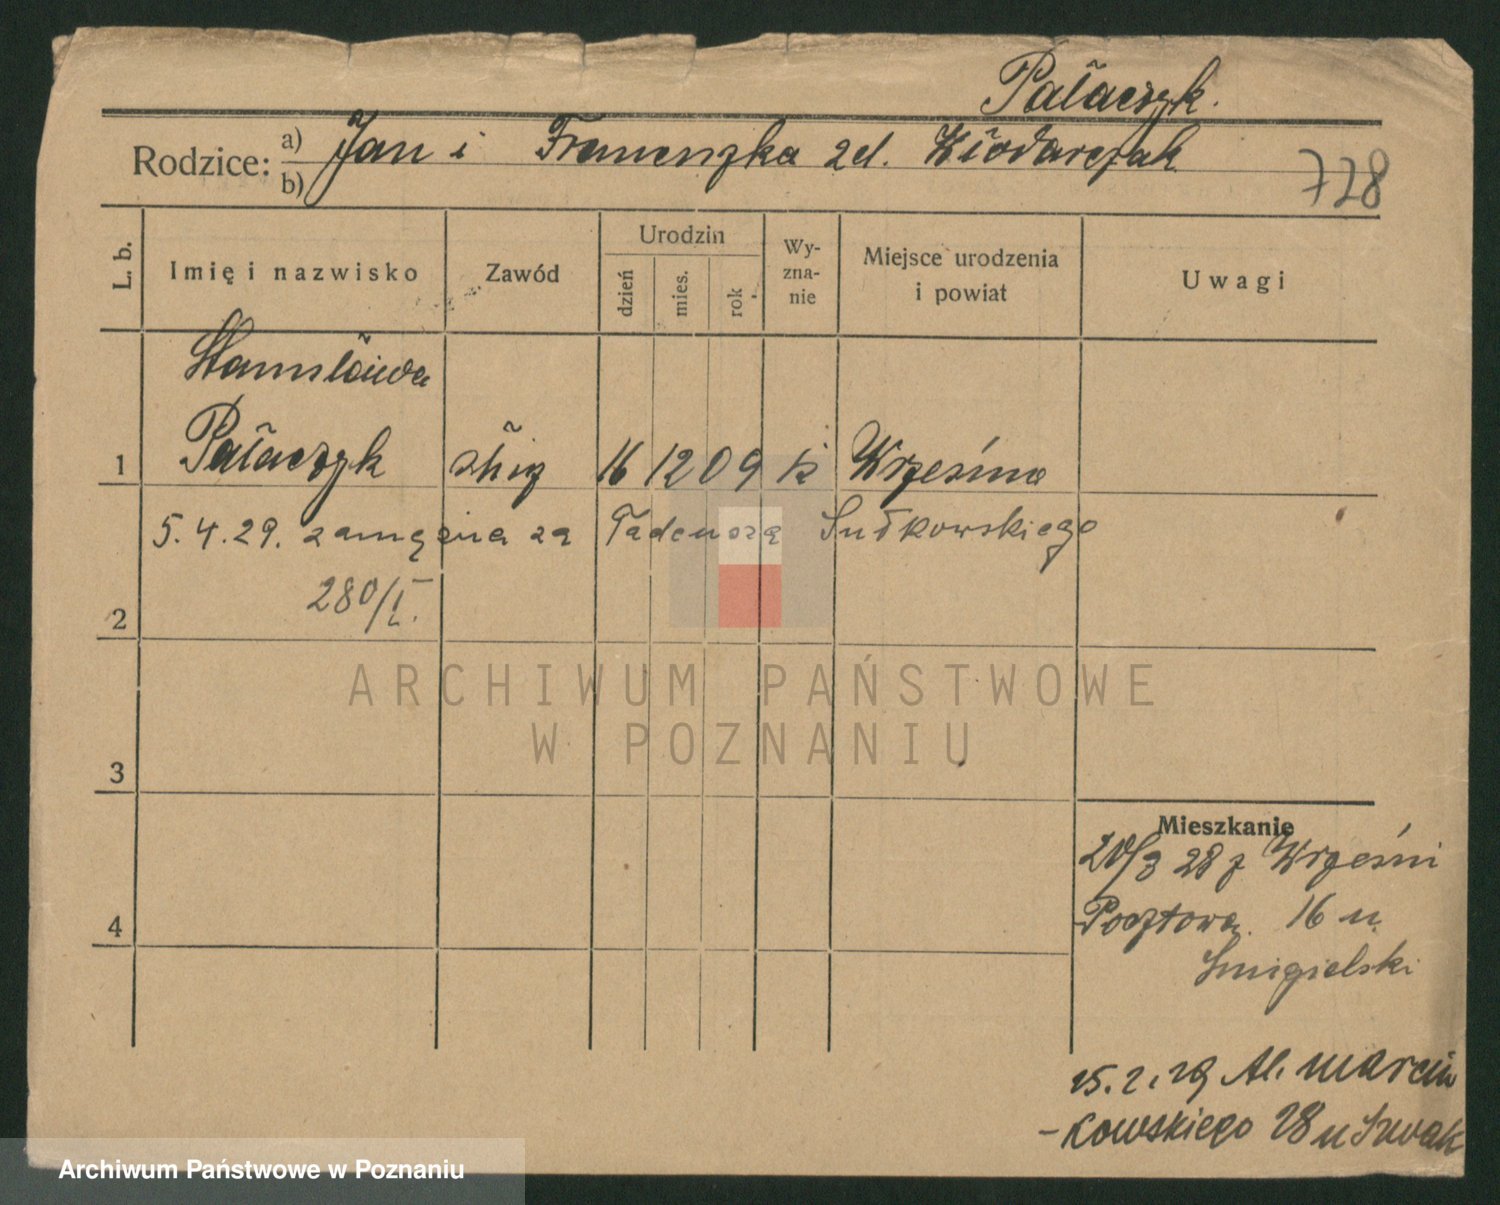 Pałaczyk.
Rodzice: a) Jan i Franciszka zd. Włodarczak
b)
728
L. b.
Imię i nazwisko
Zawód
Urodzin
dzień
mies.
rok
Wy-
zna-
nie
Miejsce urodzenia
i powiat
Uwagi
Stanisława
1 Pałaczyk służ 16 12 09 k Września
5.4.29. zamężna za Tadeusza Sułkowskiego
280/I.
2
3
4
ARCHIWUM PAŃSTWOWE
W POZNANIU
Mieszkanie
20/3 28 z Wrześni
Pocztowa 16 u
Smigielski
15.2.29 Al. Marcin
-kowskiego 28 u
Archiwum Państwowe w Poznaniu